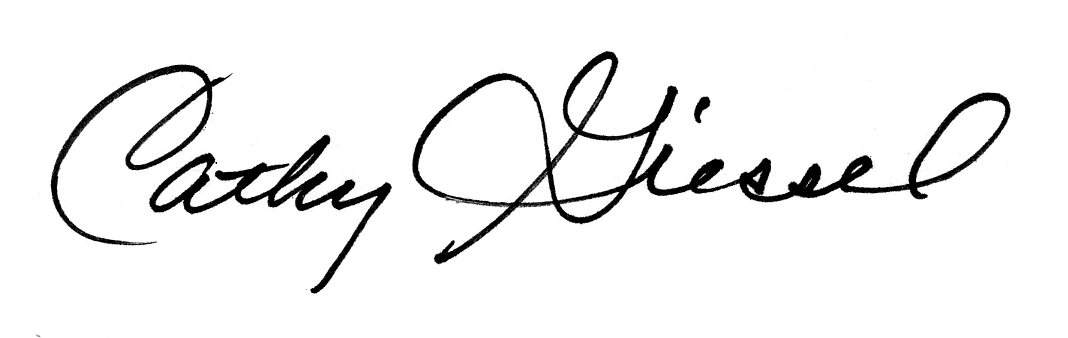 Cathy Giessel